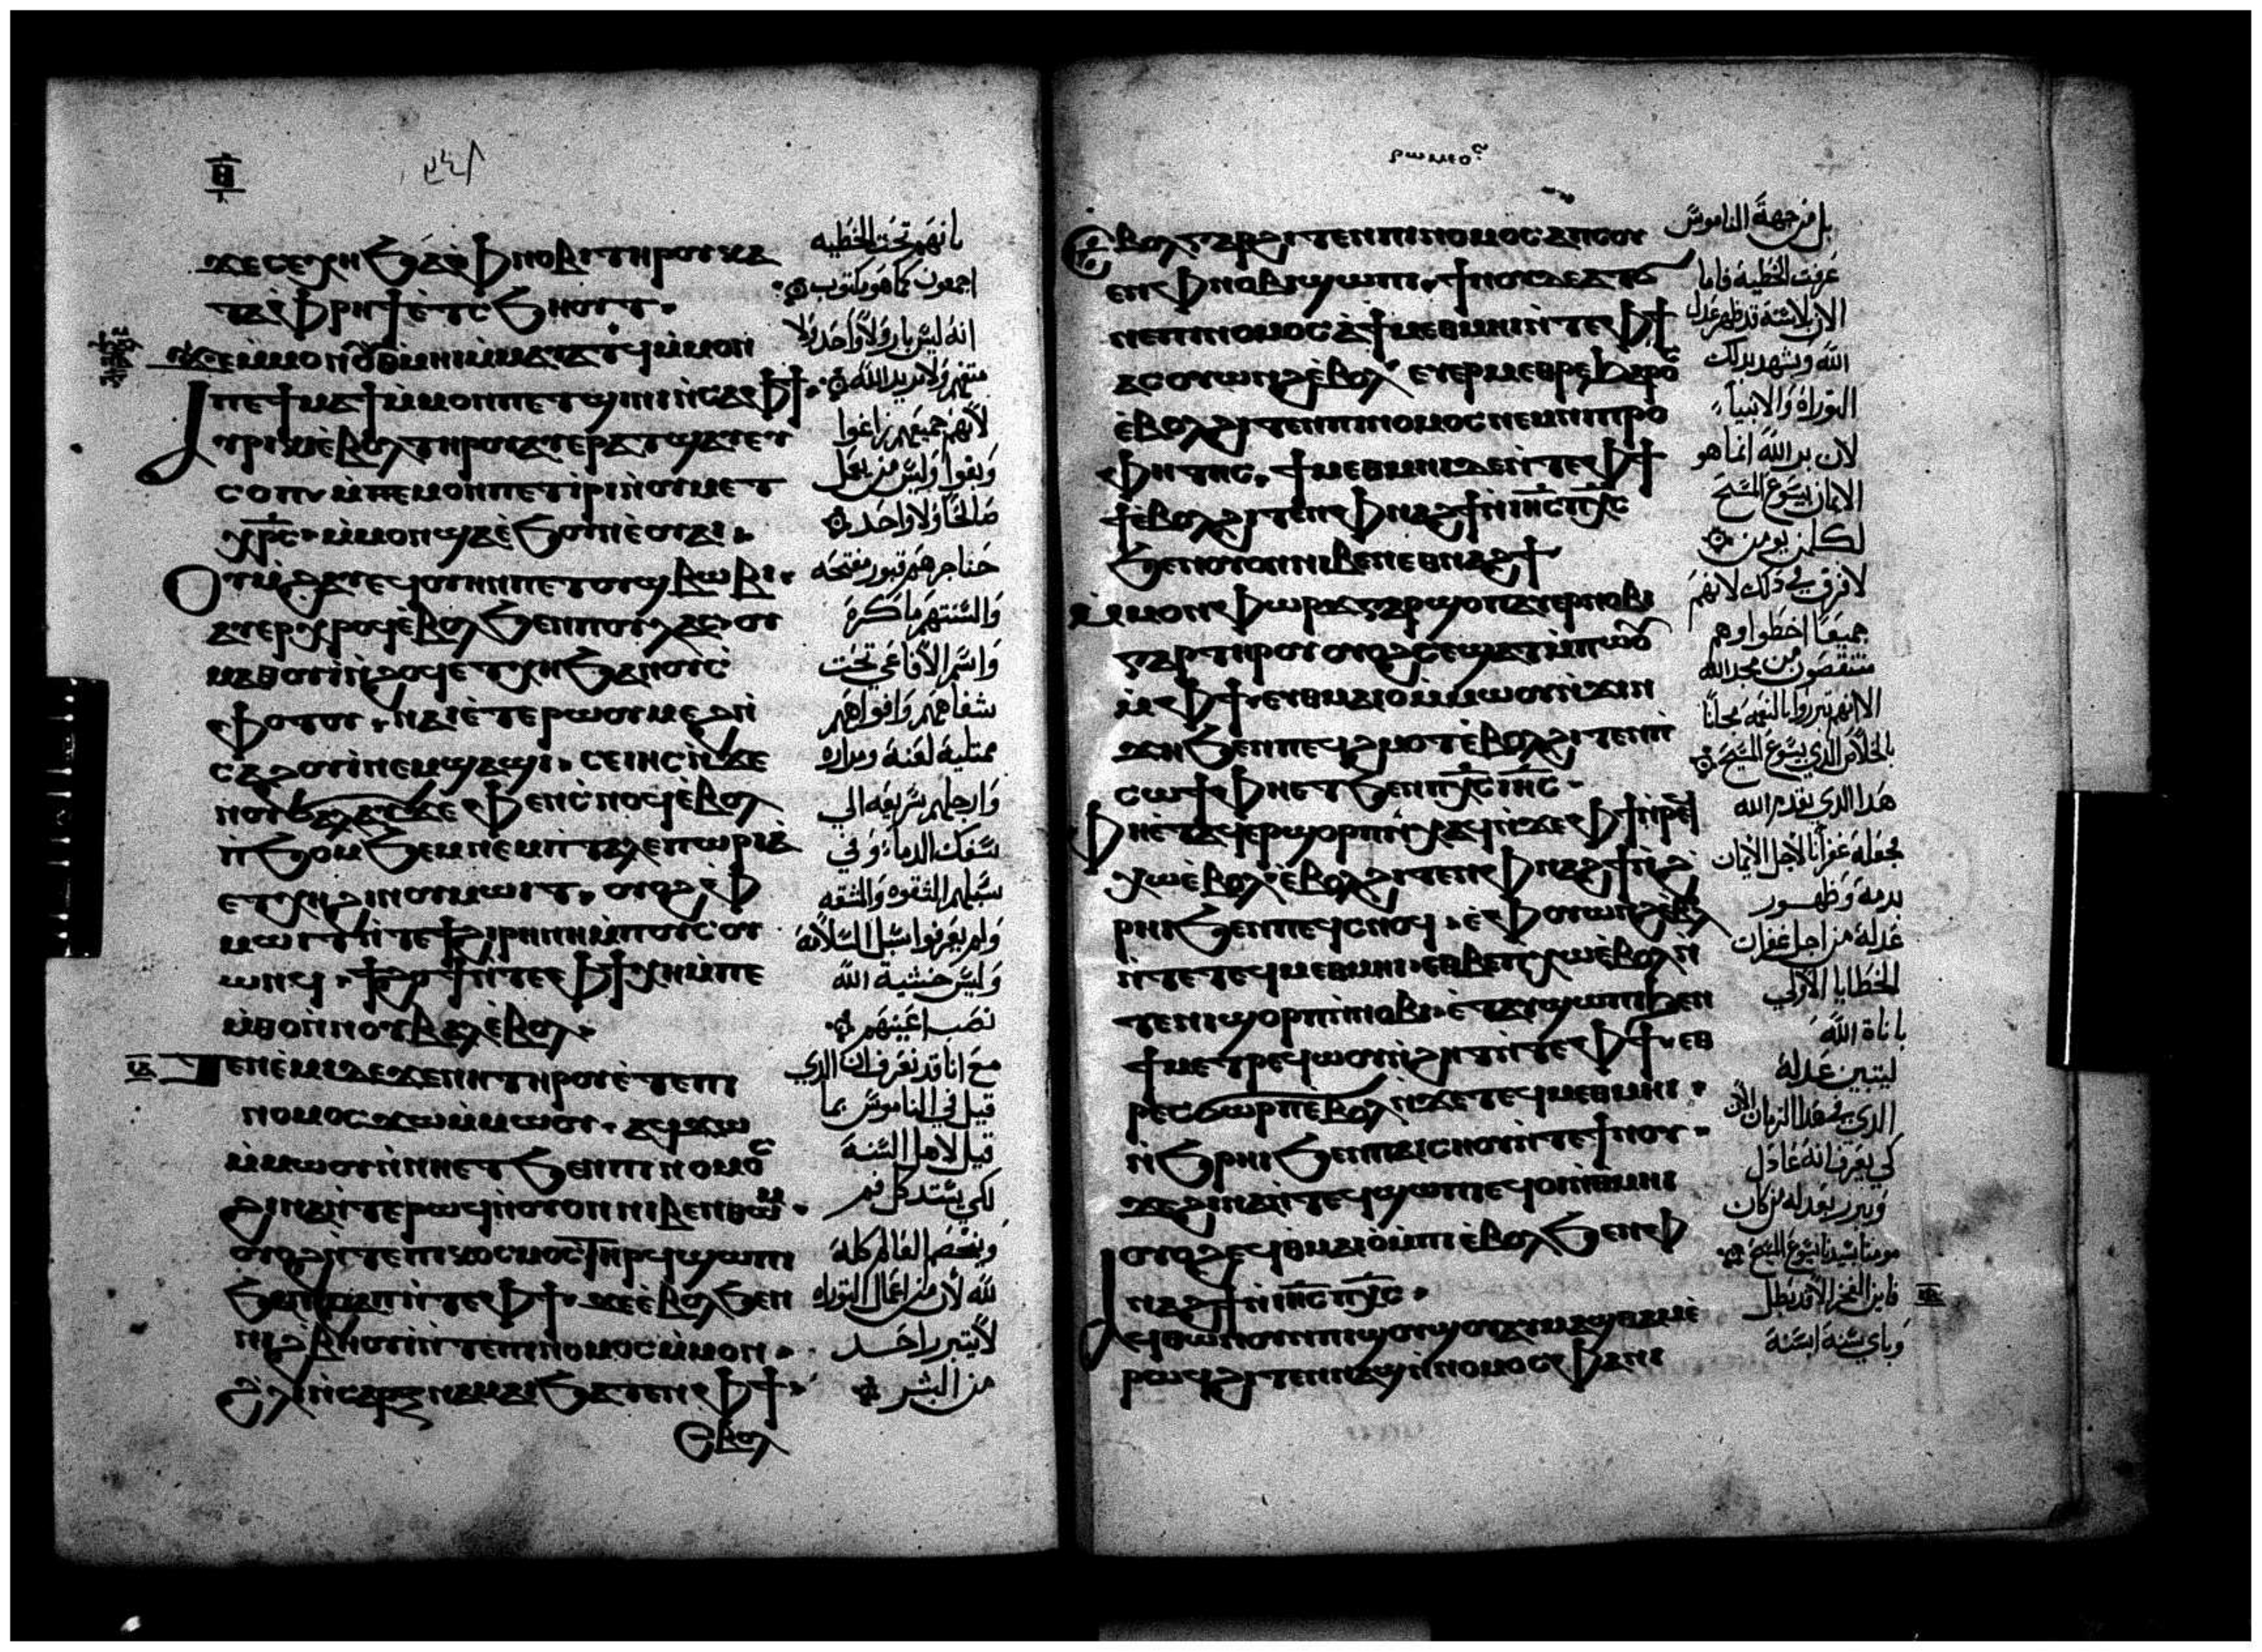 ⲑ
ϫⲉⲥⲉⲭⲏ ϧⲁ ⲫⲛⲟⲃⲓ ⲧⲏⲣⲟⲩ ⲕⲁ
ⲧⲁ ⲫⲣⲏϯ ⲉⲧⲥϧⲏⲟⲩⲧ
ⲙⲙⲁⲩⲁⲧϥ ⲙⲙⲟⲛ
ⲡⲉⲧⲕⲁϯ ⲙⲙⲟⲛ ⲡⲉⲧϣⲓⲛⲓ ⲛⲥⲁ ⲫϯ
ⲁⲩⲣⲓⲕⲓ ⲉⲃⲟⲗ ⲧⲏⲣⲟⲩ ⲁⲩⲉⲣⲁⲧϣⲁⲩ ⲉⲩ
ⲥⲟⲡ ⲙⲙⲟⲛ ⲡⲉⲧⲓⲣⲓ ⲛⲟⲩⲙⲉⲧ
ⲭⲣⲥ ⲙⲙⲟⲛ ϣⲁ ⲉϧⲟⲩⲛ ⲉⲟⲩⲁⲓ
ⲟⲩⲙϩⲁⲩ ⲉϥⲟⲩⲏⲛ ⲡⲉ ⲧⲟⲩϣⲃⲱⲃⲓ
ⲁⲩⲉⲣⲭⲣⲟϥ ⲉⲃⲟⲗ ϧⲉⲛ ⲡⲟⲩⲗⲁⲥ ⲟⲩ
ⲙⲁⲑⲟⲩⲓ ⲛϩⲟϥ ⲉⲧⲭⲏ ϧⲁ ⲛⲟⲩⲥ
ⲫⲟⲧⲟⲩ ⲛⲁⲓ ⲉⲧⲉ ⲣⲱⲟⲩ ⲙⲉϩ ⲛ
ⲥⲁϩⲟⲩⲓ ⲛⲉⲙ ϣⲁϣⲓ ⲥⲉⲓⲏⲥ ⲛϫⲉ
ⲛⲟⲩϭⲁⲗⲁⲩϫ ⲉⲫⲉⲛ ⲥⲛⲟϥ ⲉⲃⲟⲗ
ⲛϧⲟⲙϧⲉⲙ ⲛⲉⲙ ⲛⲧⲁⲗⲉⲡⲱⲣⲓⲁ
ⲉⲧⲭⲏ ϩⲓ ⲛⲟⲩⲙⲱⲓⲧ ⲟⲩⲟϩ ⲫ
ⲙⲱⲓⲧ ⲛⲧⲉ ϯϩⲓⲣⲏⲛⲏ ⲙⲡⲟⲩⲥⲟⲩ
ⲱⲛϥ ϯϩⲟϯ ⲛⲧⲉ ⲫϯ ⲭⲏ ⲙⲡⲉ
ⲙⲑⲟ ⲛⲛⲟⲩⲃⲁⲗ ⲉⲃⲟⲗ
ⲧⲉⲛⲉⲙⲓ ⲇⲉ ϫⲉ ⲛⲏ ⲧⲏⲣⲟⲩ ⲉⲧⲉ ⲡⲓ
ⲛⲟⲙⲟⲥ ϫⲱ ⲙⲙⲱⲟⲩ ⲁϥϫⲱ
ⲙⲙⲱⲟⲩ ⲛⲛⲏ ⲉⲧϧⲉⲛ ⲡⲓⲛⲟⲙⲟⲥ
ϩⲓⲛⲁ ⲛⲧⲉ ⲣⲱϥ ⲛⲟⲩⲟⲛ ⲛⲓⲃⲉⲛ ⲑⲱⲙ
ⲟⲩⲟϩ ⲛⲧⲉ ⲡⲓⲕⲟⲥⲙⲟⲥ ⲧⲏⲣϥ ϣⲱⲡⲓ
ϧⲁ ⲡϩⲁⲡ ⲛⲧⲉ ⲫϯ ϫⲉ ⲉⲃⲟⲗ ϧⲉⲛ
ⲛⲓϩⲃⲏⲟⲩⲓ ⲛⲧⲉ ⲡⲓⲛⲟⲙⲟⲥ ⲙⲙⲟⲛ
ϩⲗⲓ ⲛⲥⲁⲣⲝ ⲛⲁⲙⲁⲓ ϧⲁⲧⲉⲛ ⲫϯ
ⲉⲃⲟⲗ
بانهم تحت الخطيه
اجمعون كما هو مكتوب
انه ليس بار ولا واحد ولا
متفهم ولا مريد الله
لانهم جميعهم زاغوا
وبغوا وليس من يعمل
صالحا ولا واحد
حناجرهم قبور مفتحه
والسنتهم ماكرة
واسم الافاعي تحت
شفاههم وافواههم
ممتلية لعنة ومراره
وارجلهم سريعه الي
سفك الدماء وفي
سبيلهم الشقوه والمشقه
ولم يعرفوا سبل السلامة
وليس خشية الله
نصب اعينهم
مع انا قد نعرف ان الذي
قيل في الناموس بما
قيل لاهل السنة
لكي يستد كل فم
ويخضع العالم كله
لله لان من اعمال التوراه
لا يتبرر احد
من البشر
ⲉⲃⲟⲗ ⲅⲁⲣ ϩⲓⲧⲉⲛ ⲡⲓⲛⲟⲙⲟⲥ ⲁⲡⲥⲟⲩ
ⲉⲛ ⲫⲛⲟⲃⲓ ϣⲱⲡⲓ ϯⲛⲟⲩ ⲇⲉ ⲁⲧϭ
ⲛⲉ ⲡⲓⲛⲟⲙⲟⲥ ⲁ ϯⲙⲉⲑⲙⲏⲓ ⲛⲧⲉ ⲫϯ
ⲁⲥⲟⲩⲱⲛϩ ⲉⲃⲟⲗ ⲉⲩⲉⲣⲙⲉⲑⲣⲉ ϧⲁⲣⲟⲥ
ⲉⲃⲟⲗ ϩⲓⲧⲉⲛ ⲡⲓⲛⲟⲙⲟⲥ ⲛⲉⲙ ⲛⲓⲡⲣⲟ
ⲫⲏⲧⲏⲥ ϯⲙⲉⲑⲙⲏⲓ ⲇⲉ ⲛⲧⲉ ⲫϯ
ⲉⲃⲟⲗ ϩⲓⲧⲉⲛ ⲫⲛⲁϩϯ ⲛⲓⲏⲥ ⲡⲭⲥ
ϧⲉⲛ ⲟⲩⲟⲛ ⲛⲓⲃⲉⲛ ⲉⲑⲛⲁϩϯ
ⲙⲙⲟⲛ ⲫⲱⲣϫ ⲅⲁⲣ ϣⲟⲡ ⲁⲩⲉⲣⲛⲟⲃⲓ
ⲅⲁⲣ ⲧⲏⲣⲟⲩ ⲟⲩⲟϩ ⲥⲉϣⲁⲧ ⲙⲡⲱⲟⲩ
ⲙⲫϯ ⲉⲩⲑⲙⲁⲓⲟ ⲙⲙⲱⲟⲩ ⲛϫⲓⲛ
ϫⲏ ϧⲉⲛ ⲡⲉϥϩⲙⲟⲧ ⲉⲃⲟⲗ ϩⲓⲧⲉⲛ ⲡⲓ
ⲥⲱϯ ⲫⲏ ⲉⲧϧⲉⲛ ⲡⲭⲥ ⲓⲏⲥ
ⲫⲏ ⲉⲧⲁϥⲉⲣϣⲟⲣⲡ ⲛⲭⲁϥ ⲛϫⲉ ⲫϯ ⲛⲣⲉϥ
ⲭⲱ ⲉⲃⲟⲗ ⲉⲃⲟⲗ ϩⲓⲧⲉⲛ ⲫⲛⲁϩϯ ⲛϩ
ⲣⲏⲓ ϧⲉⲛ ⲡⲉϥⲥⲛⲟϥ ⲉⲫⲟⲩⲱⲛϩ ⲉⲃⲟⲗ
ⲛⲧⲉ ⲧⲉϥⲙⲉⲑⲙⲏⲓ ⲉⲑⲃⲉ ⲡⲭⲱ ⲉⲃⲟⲗ ⲛ
ⲧⲉ ⲛⲓϣⲟⲣⲡ ⲛⲛⲟⲃⲓ ⲉⲧⲁⲩϣⲱⲡⲓ ϧⲉⲛ
ϯⲙⲉⲧⲣⲉϥⲱⲟⲩ ⲛϩⲏⲧ ⲛⲧⲉ ⲫϯ ⲉⲑ
ⲣⲉⲥϭⲱⲣⲡ ⲉⲃⲟⲗ ⲛϫⲉ ⲧⲉϥⲙⲉⲑⲙⲏⲓ
ⲛϧⲣⲏⲓ ϧⲉⲛ ⲡⲁⲓⲥⲏⲟⲩ ⲛⲧⲉ ϯⲛⲟⲩ
ϫⲉ ϩⲓⲛⲁ ⲛⲧⲉϥϣⲱⲡⲓ ⲉϥⲟⲓ ⲛⲑⲙⲏⲓ
ⲟⲩⲟϩ ⲉϥⲑⲙⲁⲓⲟ ⲙⲡⲓⲉⲃⲟⲗ ϧⲉⲛ ⲫ
ⲛⲁϩϯ ⲛⲓⲏⲥ ⲡⲭⲥ
ⲁϥⲑⲱⲛ ⲟⲩⲛ ⲡⲓϣⲟⲩϣⲟⲩ ⲁⲩⲙⲁϣⲑⲁⲙ ⲉ
ⲣⲱϥ ϩⲓⲧⲉⲛ ⲁϣ ⲛⲛⲟⲙⲟⲥ ⲫⲁ ⲛⲓ
بل من جهة الناموس
عرفت الخطية فاما
الان بلا سنة قد ظهر عدل
الله وشهد بذلك
التوراة والانبياء
لان بر الله انما هو
الايمان بيسوع المسيح
لكل من يومن
لا فرق في ذلك لانهم
جميعا اخطوا وهم
منتقصون من مجد الله
الا انهم تبرروا بالنعمة مجانا
بالخلاص الذي بيسوع المسيح
هذا الذي تقدم الله
بجعله غفرانا لاجل الايمان
بدمه وظهور
عدله من اجل غفران
الخطايا الاولي
باناة الله
ليتبين عدله
الذي في هذا الزمان الان
كي يعرف انه عادل
ويبرر بعدله من كان
مومنا بسيدنا يسوع المسيح
فاين الفخر الان قد بطل
وباي سنة ابسنة